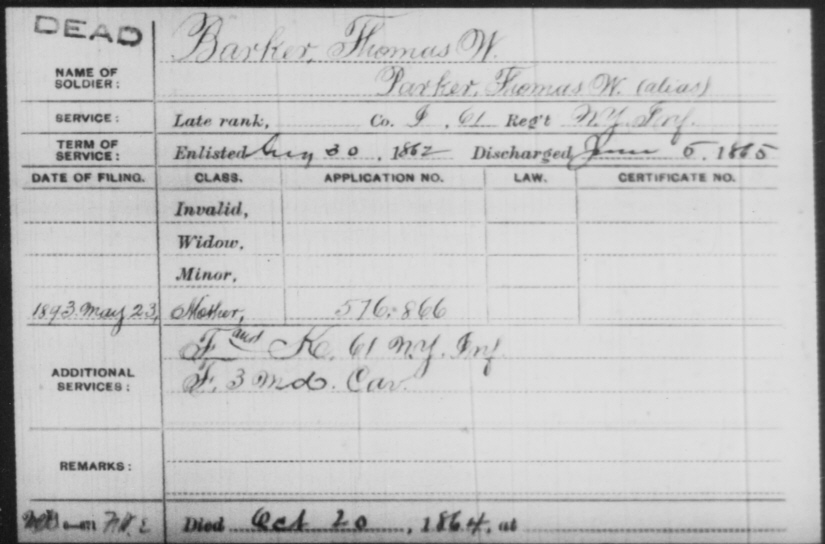 DEAD
Barker, Thomas W.
NAME OF SOLDIER:
Parker, Thomas W. (alias)
SERVICE: Late rank, Co. I, 61 Reg't N.Y. Inf.
TERM OF SERVICE: Enlisted Aug 30, 1862 Discharged June 5, 1865
DATE OF FILING. CLASS. APPLICATION NO. LAW. CERTIFICATE NO.
Invalid,
Widow,
Minor,
1893. May 23, Mother, 576.866
F and K, 61 N.Y. Inf.
ADDITIONAL SERVICES: F, 3 Md. Cav.
REMARKS:
Died Oct 20, 1864, at